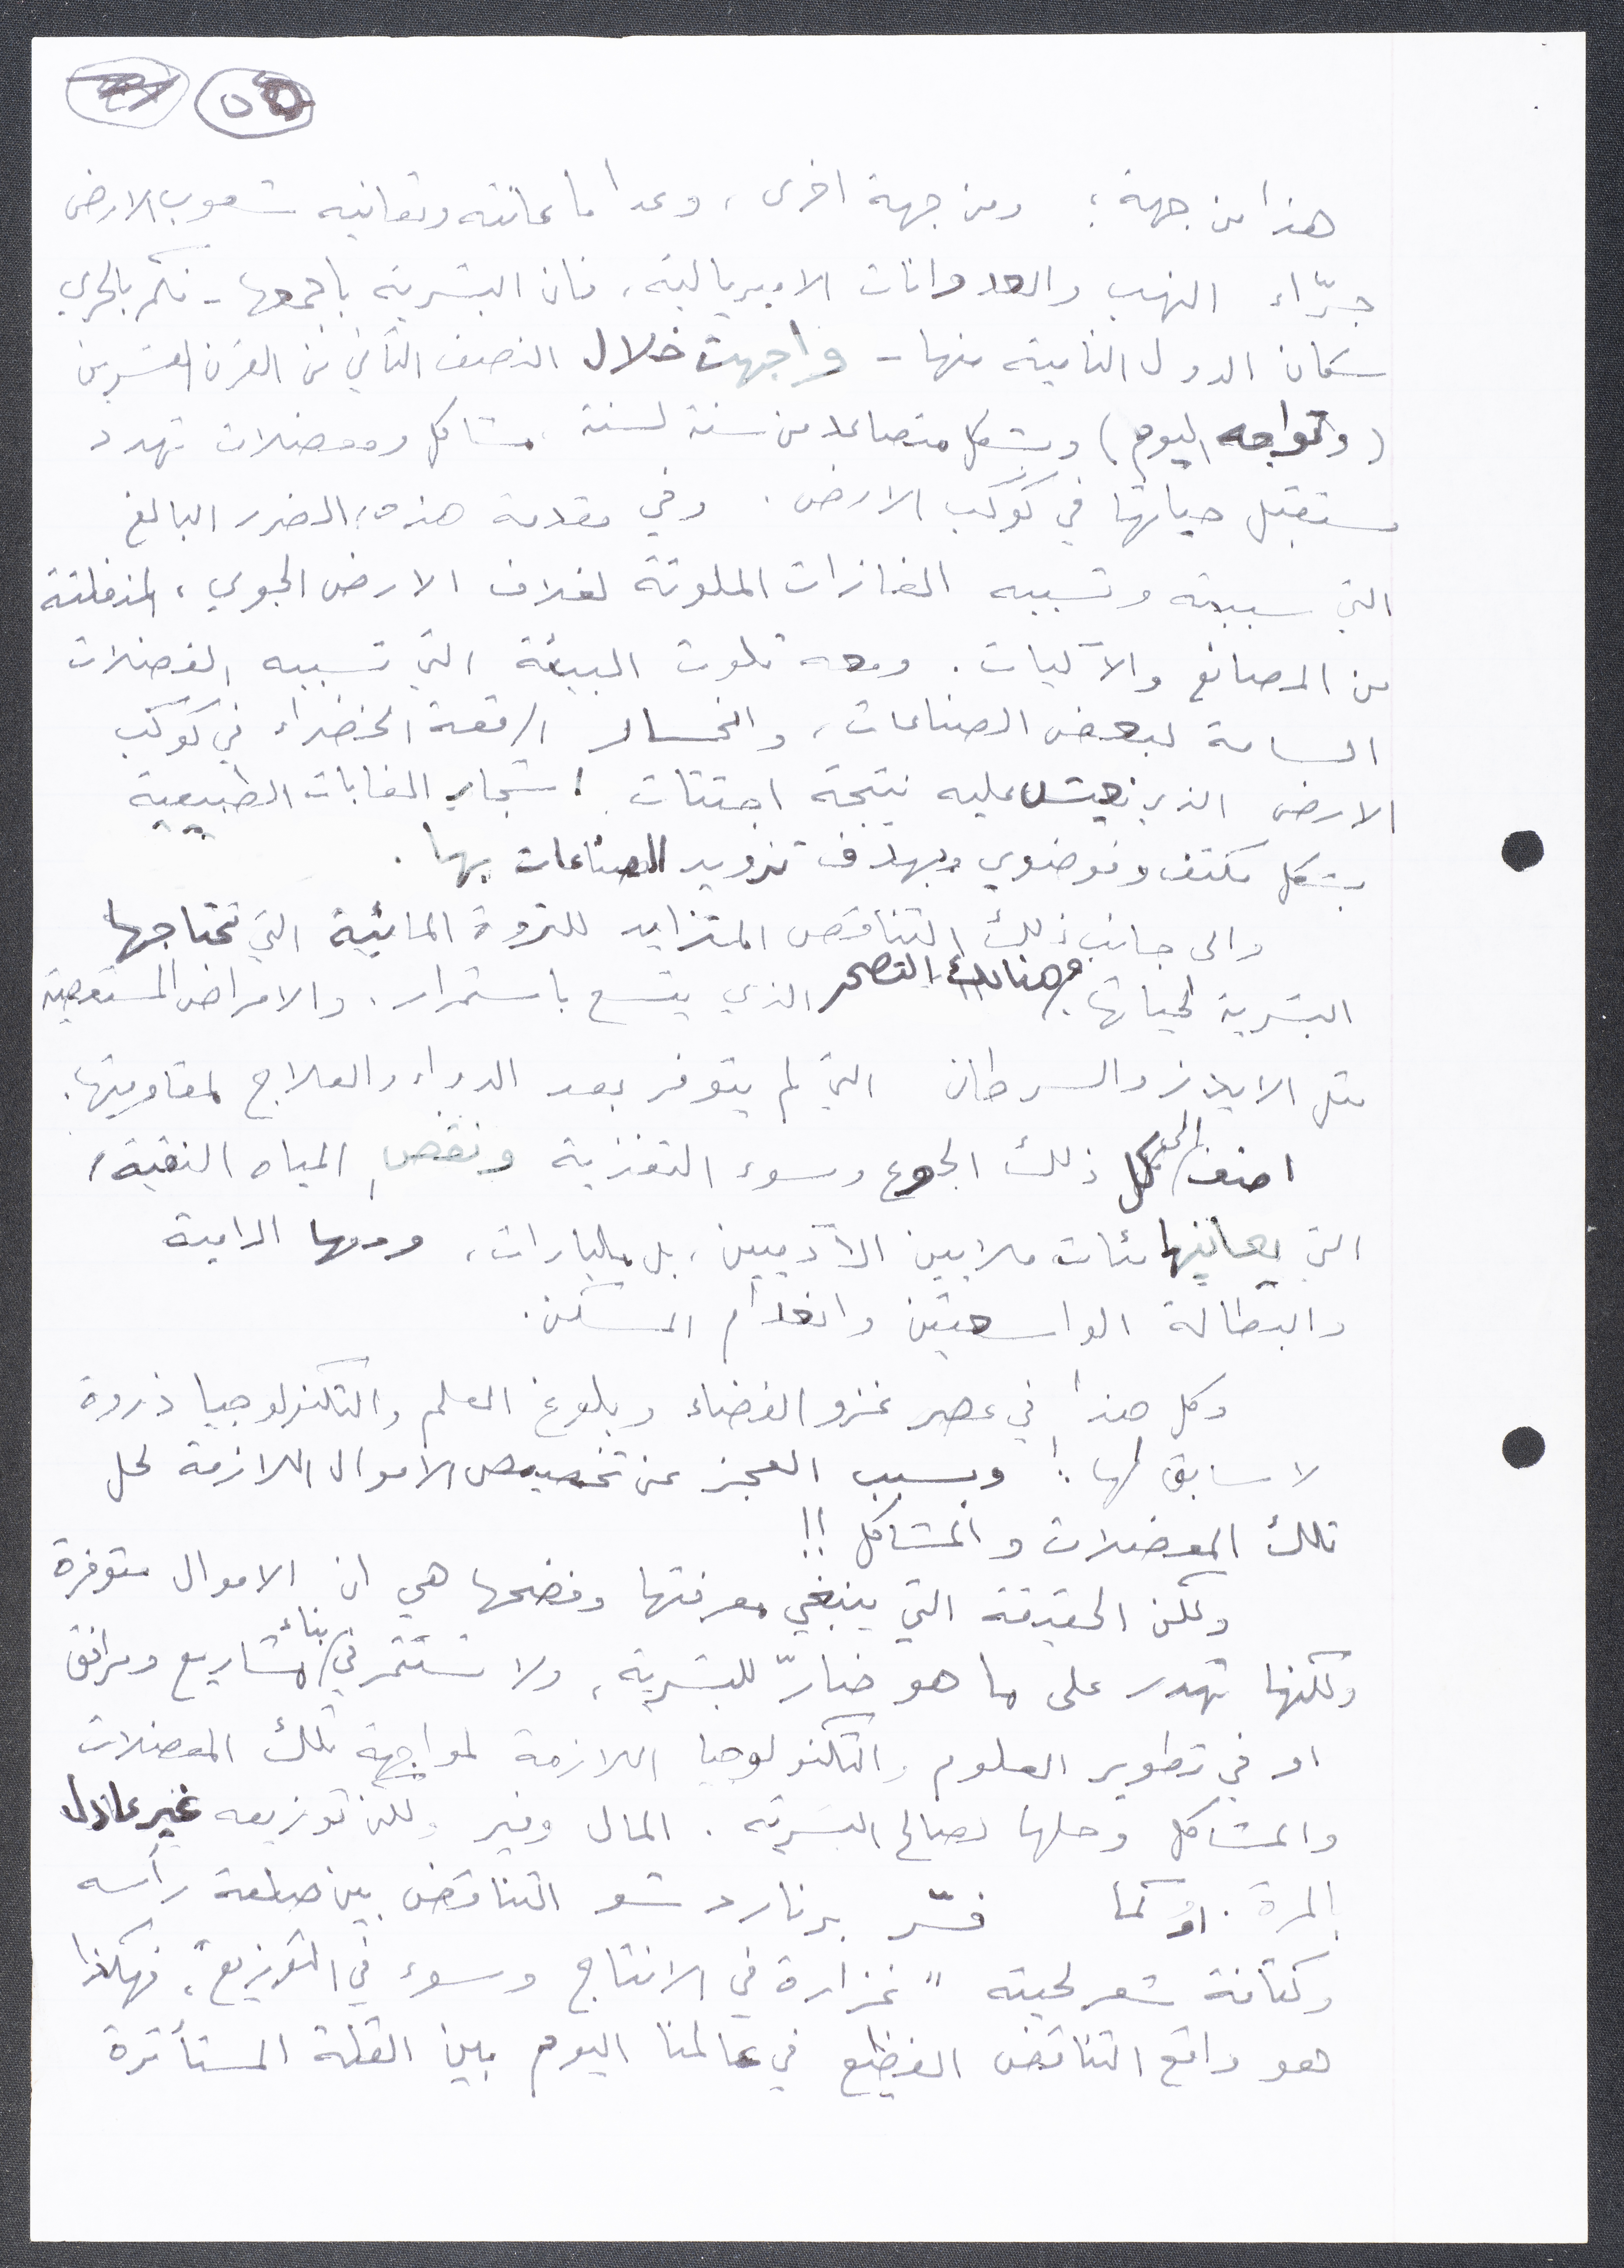 هذا من جهة؛ ومن جهة اخرى، وعدا ما عانته وتعانيه شعوب الارض
جرّاء النهب والعدوانات الامبريالية، فان البشرية باجمعها - فكم بالحري
سكان الدول النامية منها - واجهت خلال النصف الثاني من القرن العشرين
(وتواجه اليوم) وبشكل متصاعد من سنة لسنة، مشاكل ومعضلات تهدد
مستقبل حياتها في كوكب الارض. وفي مقدمة هذه، الضرر البالغ
التي سببته وتسببه الغازات الملوثة لغلاف الارض الجوي، المنفلتة
من المصانع والآليات. ومعه تلوث البيئة التي تسببه الفضلات
السامة لبعض الصناعات، وانحسار الرقعة الخضراء في كوكب
الارض الذي نعيش عليه نتيجة اجتثاث اشجار الغابات الطبيعية
بشكل مكثف وفوضوي وبهدف تزويد الصناعات بها.
والى جانب ذلك التناقص المتزايد للثروة المائية التي تحتاجها
البشرية لحياتها. وهنالك التصحر الذي يتسع باستمرار. والامراض المستعصية
مثل الايدز والسرطان التي لم يتوفر بعد الدواء والعلاج لمقاومتها.
اضف الى كل ذلك الجوع وسوء التغذية ونقص المياه النقية،
التي يعانيها مئات ملايين الآدميين، بل مليارات، ومعها الامية
والبطالة الواسعتين وانعدام المسكن.
وكل هذا في عصر غزو الفضاء وبلوغ العلم والتكنولوجيا ذروة
لا سابق لها! وبسبب العجز عن تخصيص الاموال اللازمة لحل
تلك المعضلات والمشاكل!!
ولكن الحقيقة التي ينبغي معرفتها وفضحها هي ان الاموال متوفرة
ولكنها تهدر على ما هو ضارّ للبشرية، ولا تستثمر في بناء مشاريع ومرافق
او في تطوير العلوم والتكنولوجيا اللازمة لمواجهة تلك المعضلات
والمشاكل وحلها لصالح البشرية. المال وفير ولكن توزيعه غير عادل
بالمرة. او كما فسّر برنارد شو التناقض بين صلعة رأسه
وكثافة شعر لحيته "غزارة في الانتاج وسوء في التوزيع"، فهكذا
هو واقع التناقض الفظيع في عالمنا اليوم بين القلة المستأثرة